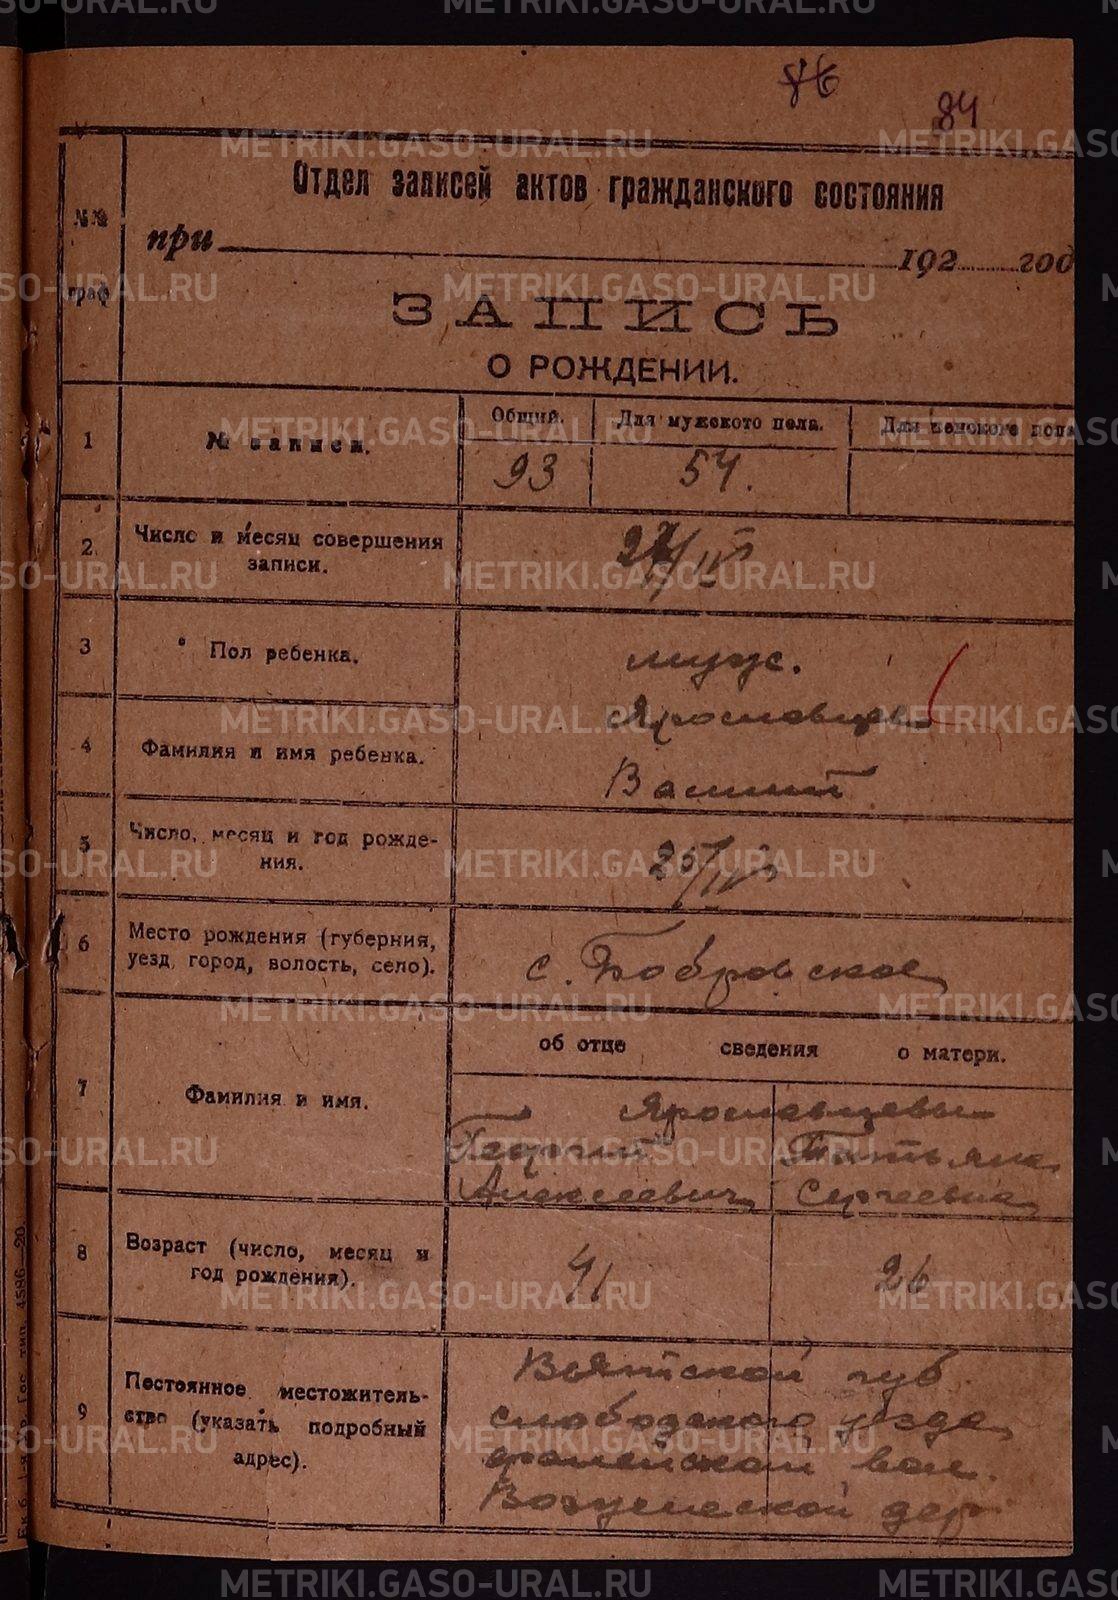 86
84
Отдел записей актов гражданского состояния
№№ граф
при 192 год
ЗАПИСЬ
О РОЖДЕНИИ.
1
№ записи.
Общий.
Для мужского пола.
Для женского пола
93
54.
2
Число и месяц совершения
записи.
27/IV
3
Пол ребенка.
муж.
4
Фамилия и имя ребенка.
Ярославцев
5
Число, месяц и год рожде-
ния.
25/IV
6
Место рождения (губерния,
уезд, город, волость, село).
с. Бобровское
об отце сведения о матери.
7
Фамилия и имя.
Ярославцевы
Георгий
Алексеевич
Татьяна
Сергеевна
8
Возраст (число, месяц и
год рождения).
41
26
9
Постоянное местожитель-
ство (указать подробный
адрес).
Вятской губ.
слободского уезда
вол.
дер
METRIKI.GASO-URAL.RU